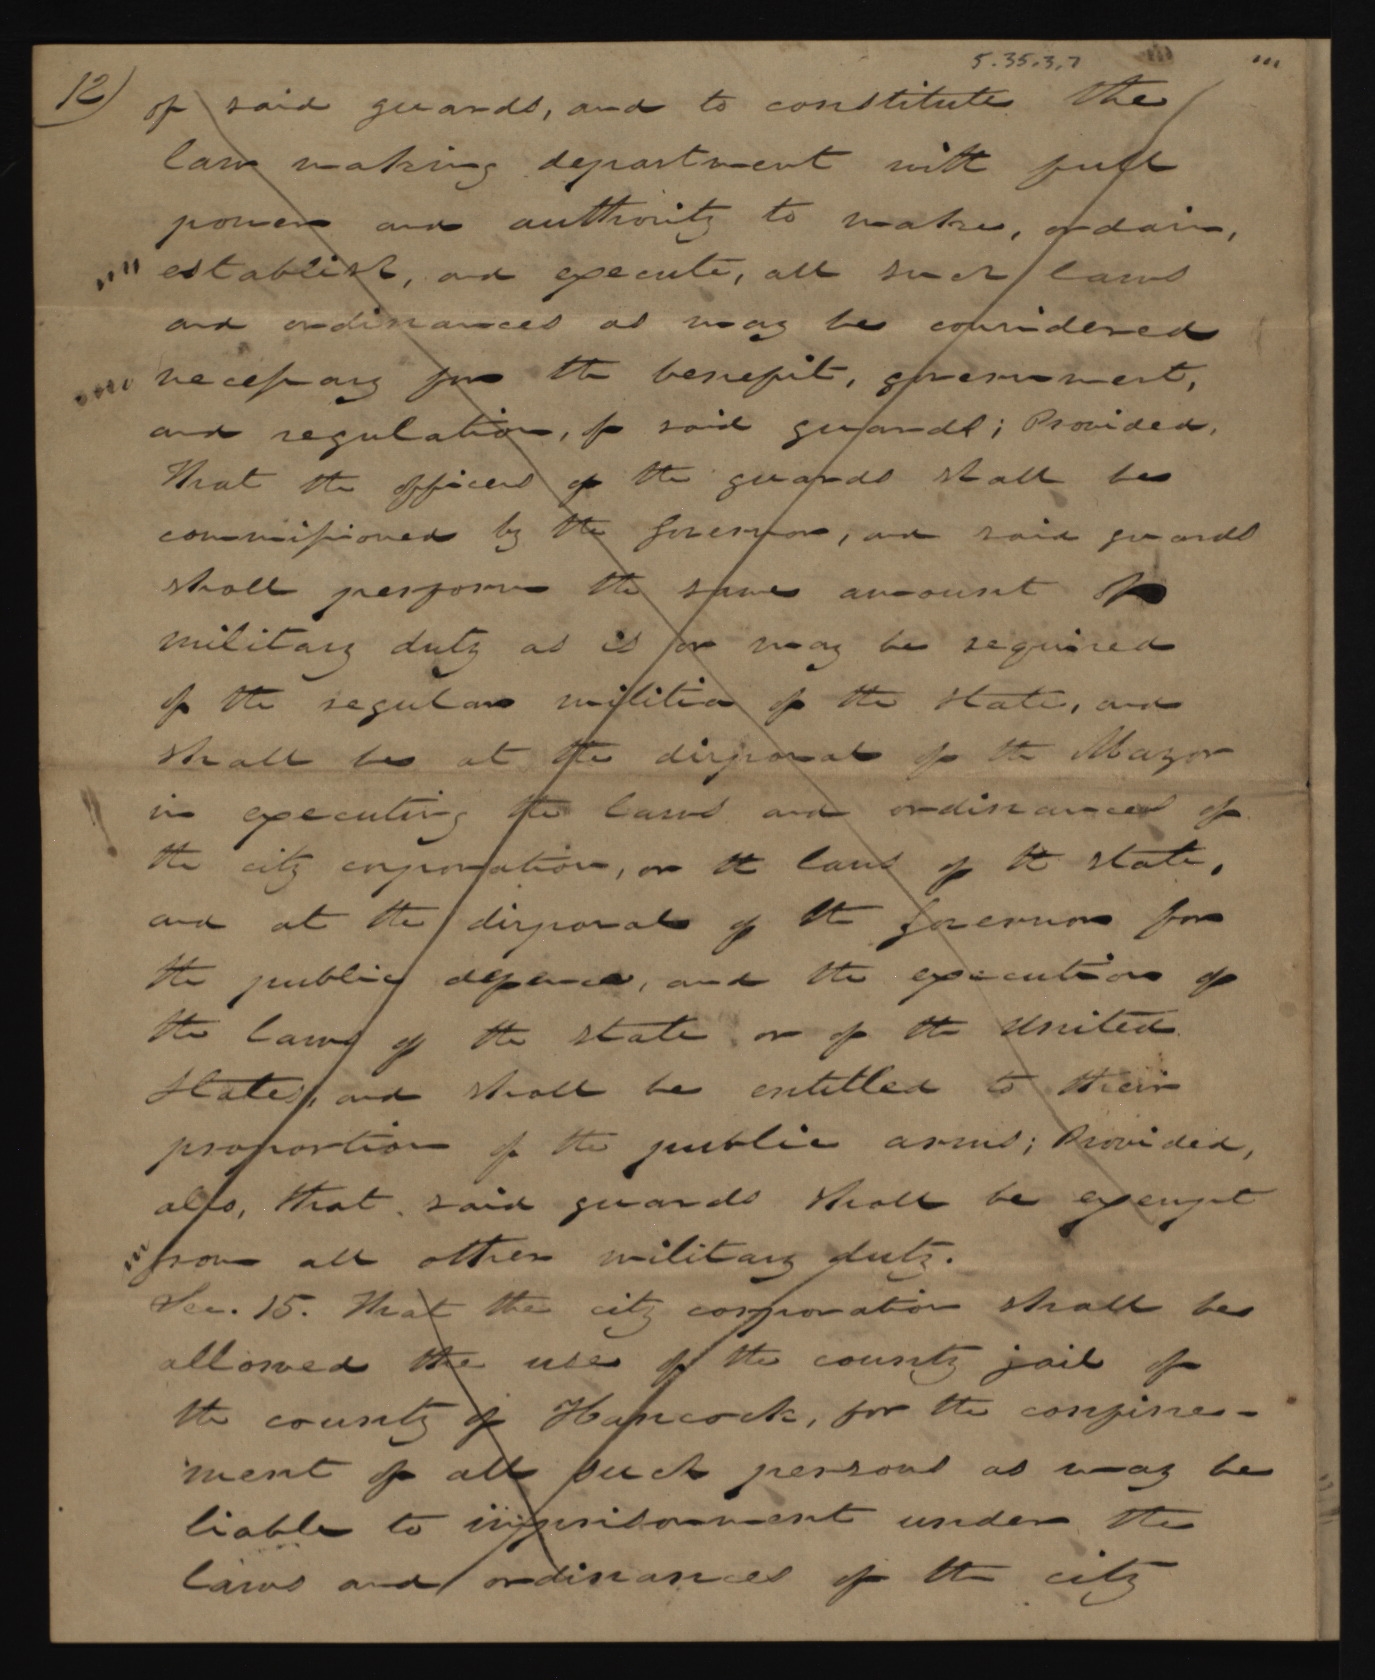 5.35.3.7
12)
of said guards, and to constitute the
law making department with full
power and authority to make, ordain,
establish, and execute, all such laws
and ordinances as may be considered
necessary for the benefit, government,
and regulation, of said guards; Provided,
That the officers of the guards shall be
commissioned by the Governor, and said guards
shall perform the same amount of
military duty as is or may be required
of the regular militia of the state, and
shall be at the disposal of the Mayor
in executing the laws and ordinances of
the city corporation, or the laws of the state,
and at the disposal of the Governor for
the public defence, and the execution of
the laws of the state or of the United
States, and shall be entitled to their
proportion of the public arms; Provided,
also, that said guards shall be exempt
from all other military duty.
Sec. 15. That the city corporation shall be
allowed the use of the county jail of
the county of Hancock, for the confine-
ment of all such persons as may be
liable to imprisonment under the
laws and ordinances of the city